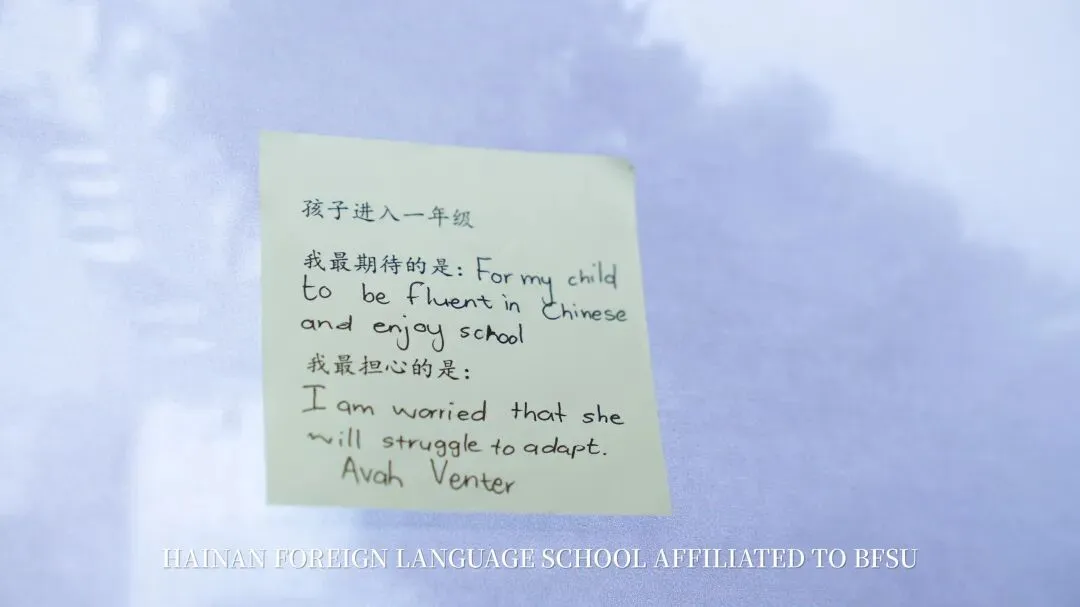 孩子进入一年级
我最期待的是：For my child
to be fluent in Chinese
and enjoy school
我最担心的是：
I am worried that she
will struggle to adapt.
Avah Venter
HAINAN FOREIGN LANGUAGE SCHOOL AFFILIATED TO BFSU